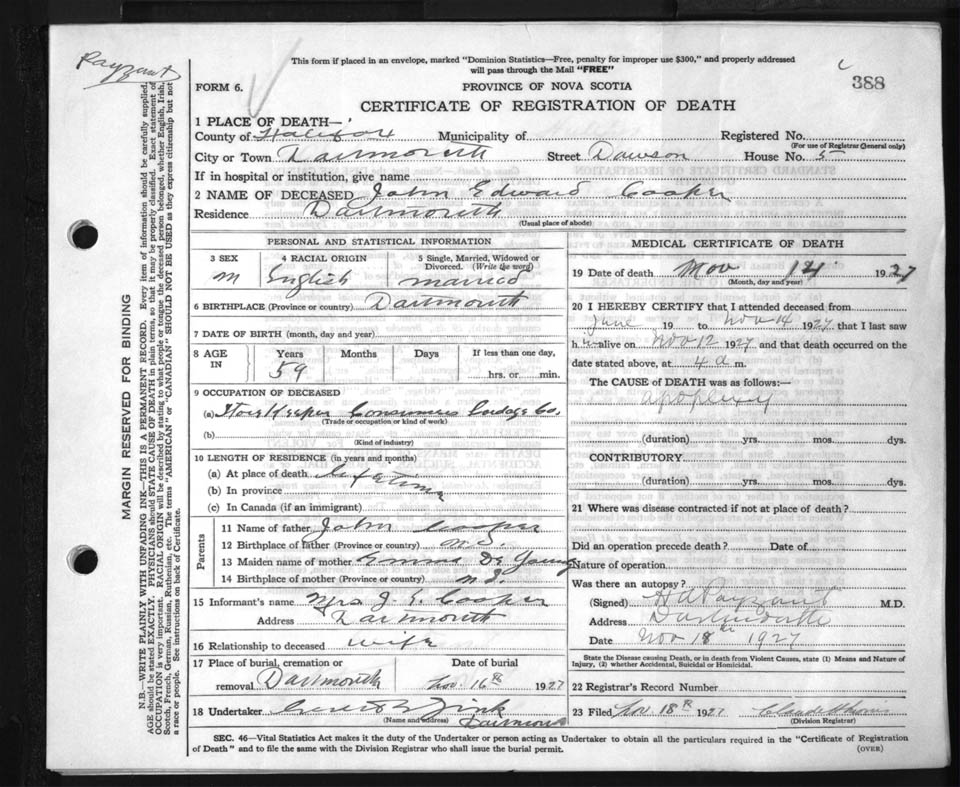 Payzant
This form if placed in an envelope, marked "Dominion Statistics—Free, penalty for improper use $300," and properly addressed
will pass through the Mail "FREE"
388
FORM 6.
PROVINCE OF NOVA SCOTIA
CERTIFICATE OF REGISTRATION OF DEATH
1 PLACE OF DEATH—
County of Halifax Municipality of Registered No.
(For use of Registrar General only)
City or Town Dartmouth Street Dawson House No. 5
If in hospital or institution, give name
2 NAME OF DECEASED John Edward Cooper
Residence Dartmouth
(Usual place of abode)
PERSONAL AND STATISTICAL INFORMATION
3 SEX 4 RACIAL ORIGIN 5 Single, Married, Widowed or
Divorced. (Write the word)
M English married
6 BIRTHPLACE (Province or country) Dartmouth
7 DATE OF BIRTH (month, day and year)
8 AGE Years Months Days If less than one day,
IN 59 hrs. or min.
9 OCCUPATION OF DECEASED
(a) Store Keeper Consumers Cordage Co.
(Trade or occupation or kind of work)
(b)
(Kind of industry)
10 LENGTH OF RESIDENCE (in years and months)
(a) At place of death Lifetime
(b) In province
(c) In Canada (if an immigrant)
Parents
11 Name of father John Cooper
12 Birthplace of father (Province or country) N.S.
13 Maiden name of mother Emma De Young
14 Birthplace of mother (Province or country) N.S.
15 Informant's name Mrs J. E. Cooper
Address Dartmouth
16 Relationship to deceased wife
17 Place of burial, cremation or Date of burial
removal Dartmouth Nov. 16th 1927
18 Undertaker Zink
(Name and address) Dartmouth
MEDICAL CERTIFICATE OF DEATH
19 Date of death Nov 14 1927
(Month, day and year)
20 I HEREBY CERTIFY that I attended deceased from
June 19 to Nov 14 1927 that I last saw
him alive on Nov 12 1927 and that death occurred on the
date stated above, at 4 a m.
The CAUSE of DEATH was as follows:—
apoplexy
(duration) yrs. mos. dys.
CONTRIBUTORY
(duration) yrs. mos. dys.
21 Where was disease contracted if not at place of death?
Did an operation precede death? Date of
Nature of operation
Was there an autopsy?
(Signed) H A Payzant M.D.
Address Dartmouth
Date Nov 18th 1927
State the Disease causing Death, or in death from Violent Causes, state (1) Means and Nature of
Injury, (2) whether Accidental, Suicidal or Homicidal.
22 Registrar's Record Number
23 Filed Nov. 18th 1927
(Division Registrar)
SEC. 46—Vital Statistics Act makes it the duty of the Undertaker or person acting as Undertaker to obtain all the particulars required in the "Certificate of Registration
of Death" and to file the same with the Division Registrar who shall issue the burial permit.
(OVER)
MARGIN RESERVED FOR BINDING
N.B.—WRITE PLAINLY WITH UNFADING INK—THIS IS A PERMANENT RECORD. Every item of information should be carefully supplied.
AGE should be stated EXACTLY. PHYSICIANS should STATE CAUSE OF DEATH in plain terms, so that it may be properly classified. Exact statement of
OCCUPATION is very important. RACIAL ORIGIN will be described by stating to what people or tongue the deceased person belonged, whether English, Irish,
Scotch, French, German, Russian, Ruthenian, etc. The terms "AMERICAN" or "CANADIAN" SHOULD NOT BE USED as they express citizenship but not
a race or people. See instructions on back of Certificate.